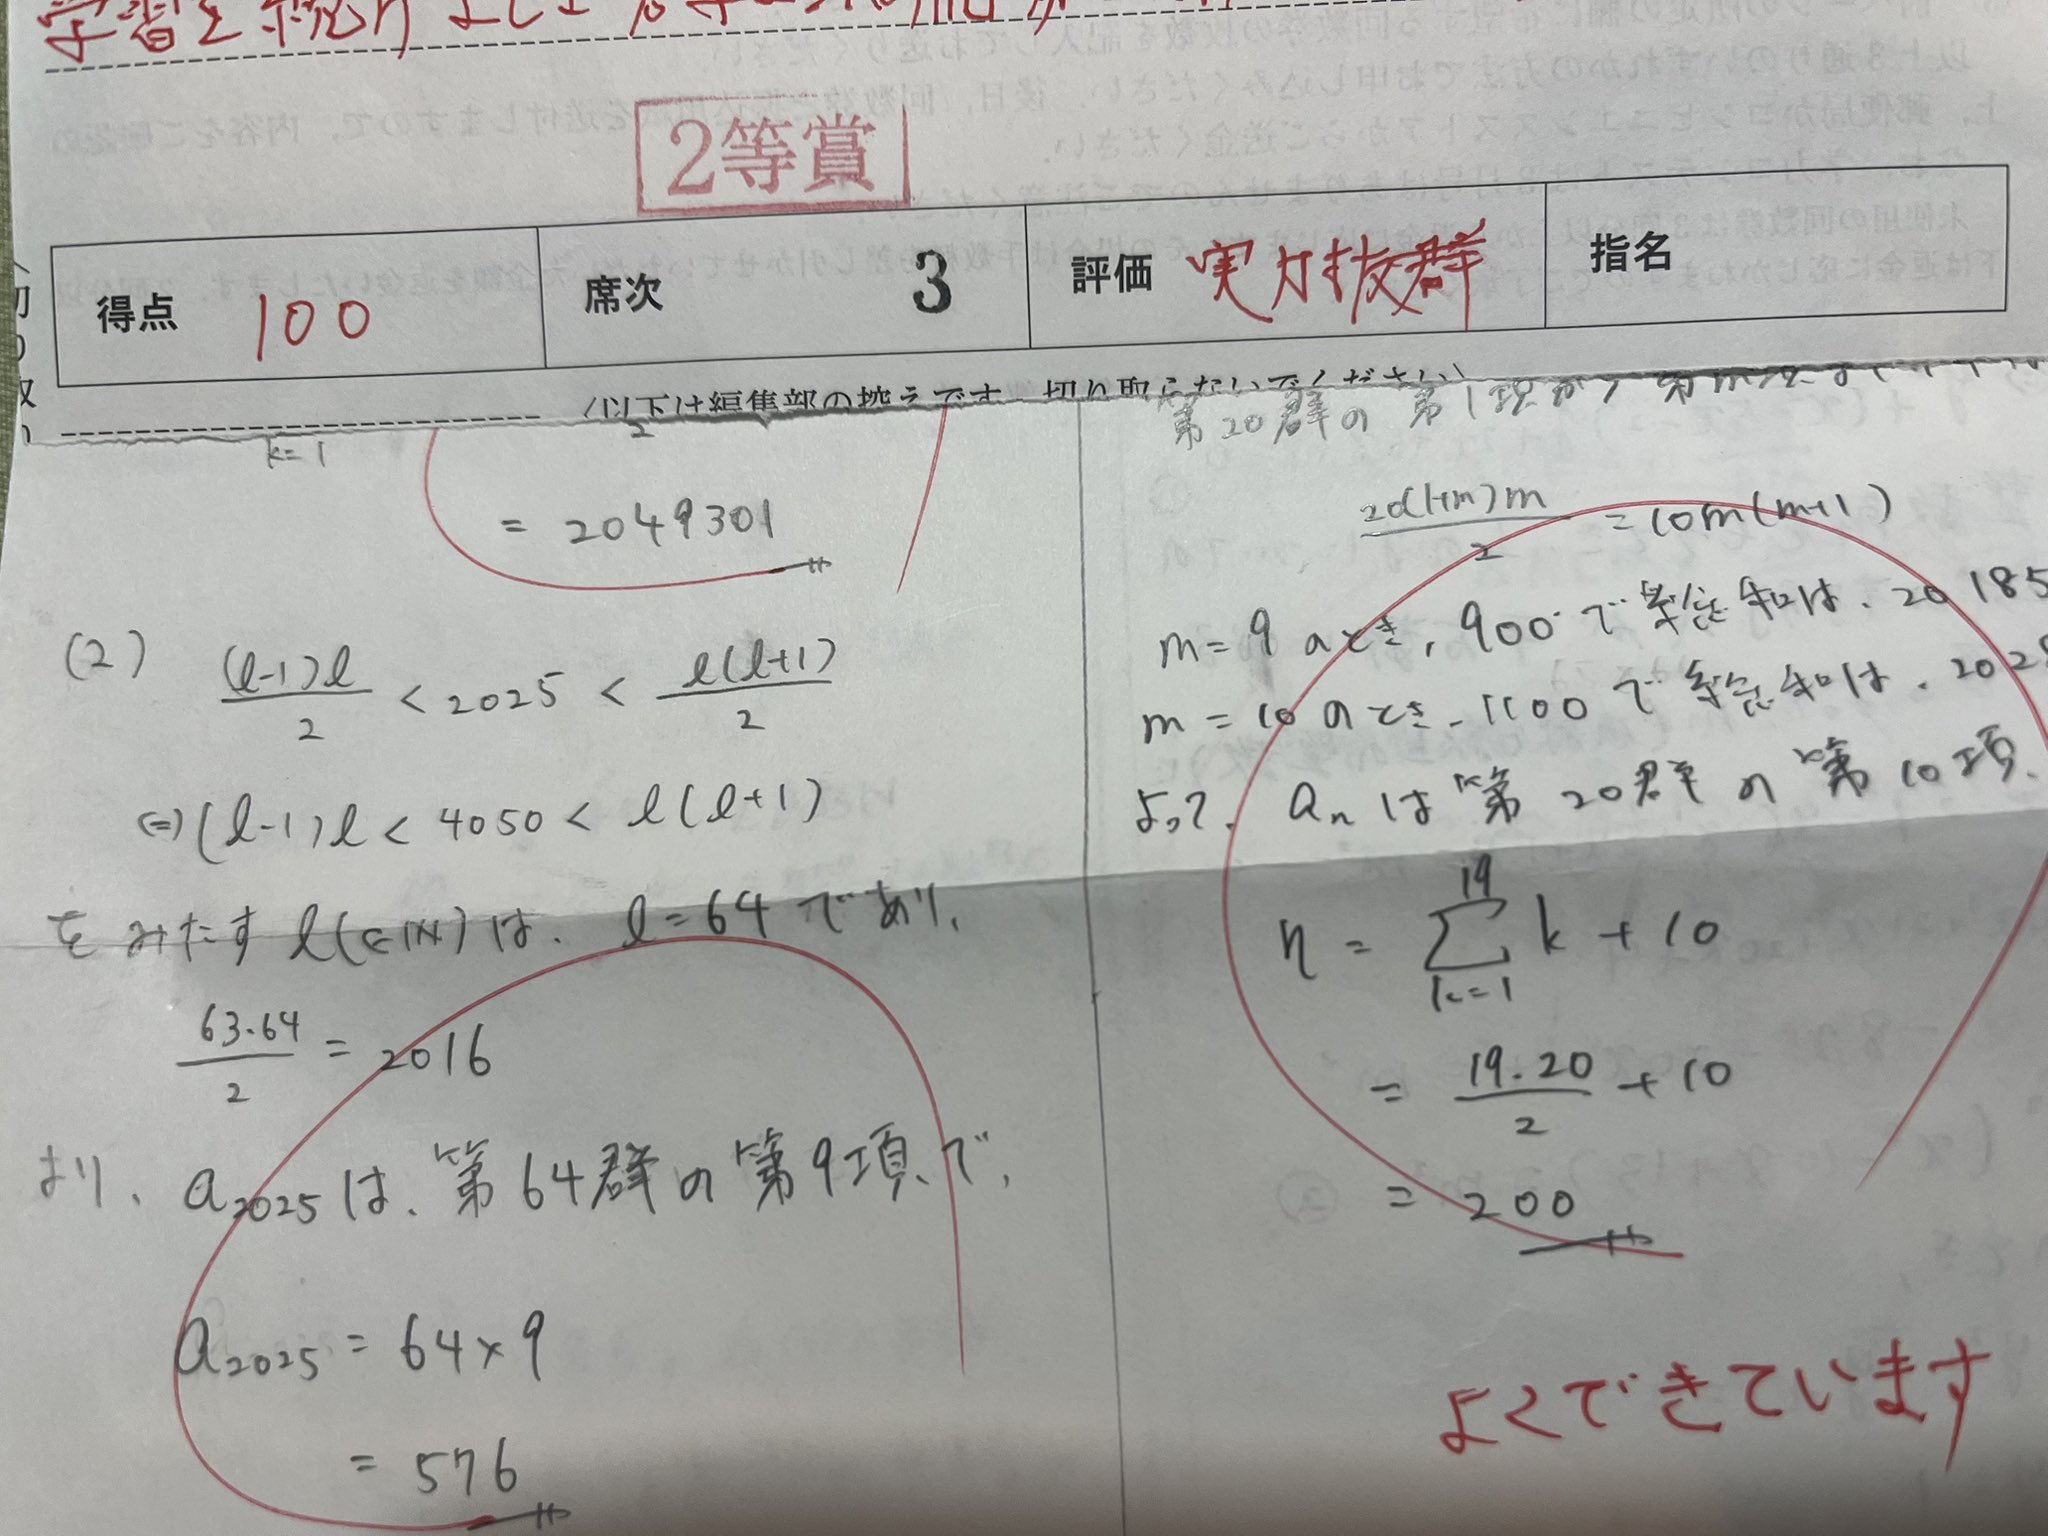 学習を続け
2等賞
得点 100 席次 3 評価 実力抜群 指名
(以下は編集部の控えです。切り取らないでください)
k=1
2
= 2049301
(2) (l-1)l/2 < 2025 < l(l+1)/2
⇔(l-1)l < 4050 < l(l+1)
をみたす l(∈N)は、l=64であり、
63・64/2 = 2016
より、a2025は、第64群の第9項で、
a2025 = 64×9
= 576
第20群の第1項から第m項
20(1+m)m/2 = 10m(m+1)
m=9のとき、900で総和は、20185
m=10のとき、1100で総和は、2028
よって、anは第20群の第10項、
n = 19Σk=1 k + 10
= 19・20/2 + 10
= 200
よくできています